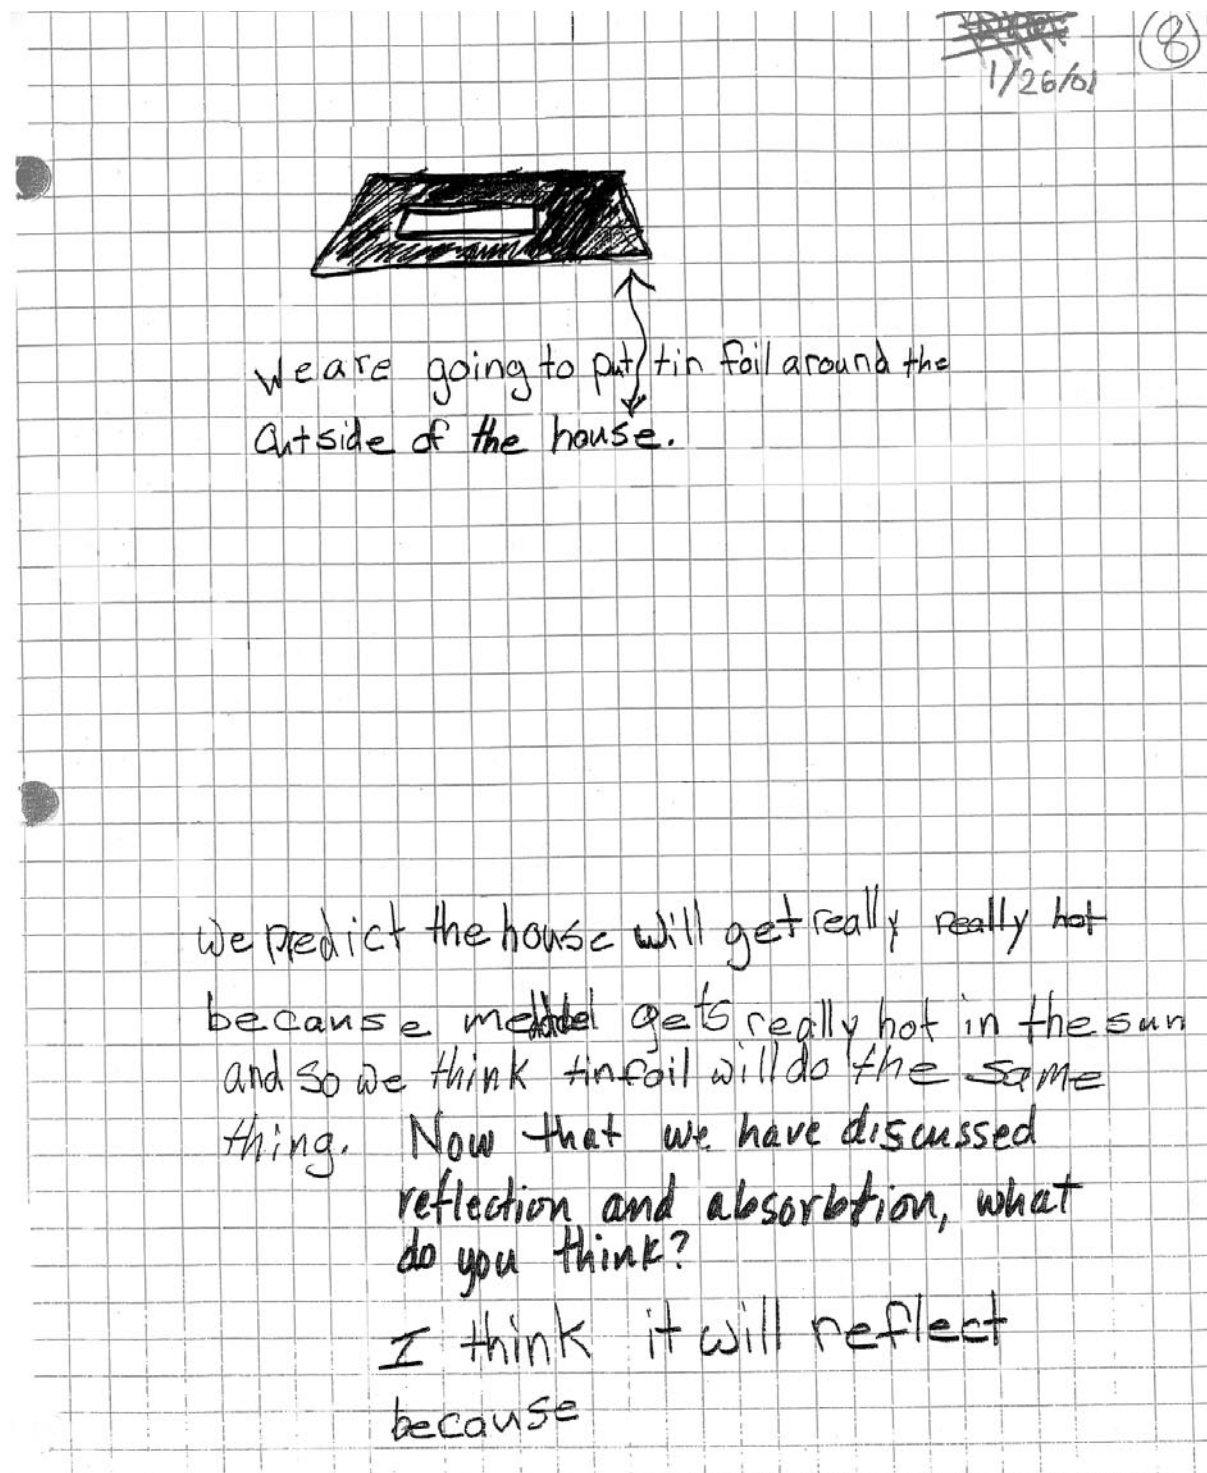 8
1/26/01
we are going to put tin foil around the
outside of the house.
We predict the house will get really really hot
because gets really hot in the sun
and so we think tinfoil will do the same
thing. Now that we have discussed
reflection and absorbtion, what
do you think?
I think it will reflect
because